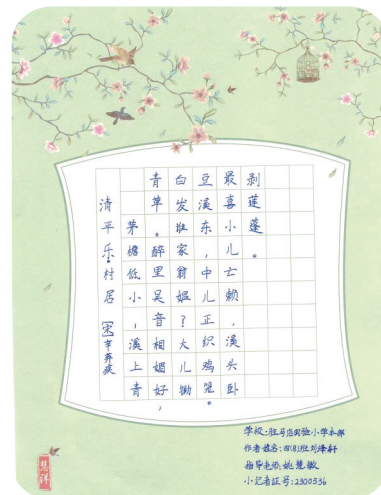 清平乐·村居 [宋]辛弃疾
茅檐低小,溪上青
青草。醉里吴音相媚好,
白发谁家翁媪?大儿锄
豆溪东,中儿正织鸡笼。
最喜小儿亡赖,溪头卧
剥莲蓬。
学校:驻马店实验小学本部
作者姓名:四(8)班刘
指导老师:姚慧敏
小记者证号:2300536